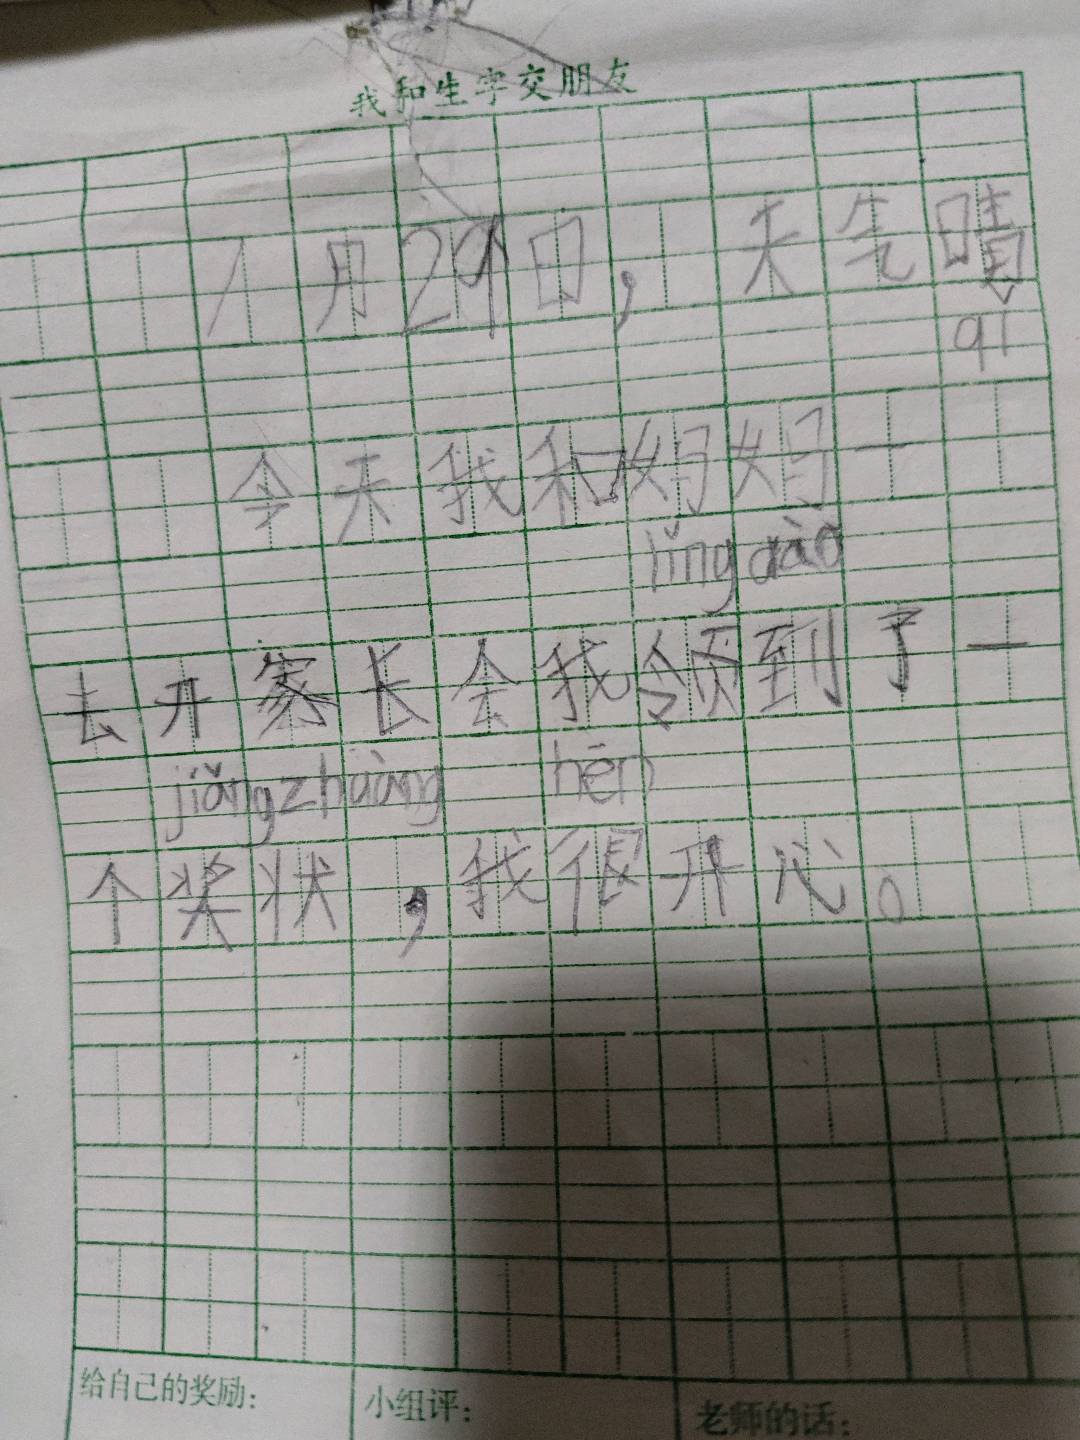 我和生字交朋友
1月29日，天气晴
qǐ
今天我和妈妈一
lǐng dào
去开家长会我领到了一
jiǎng zhuàng hěn
个奖状，我很开心。
给自己的奖励： 小组评： 老师的话：